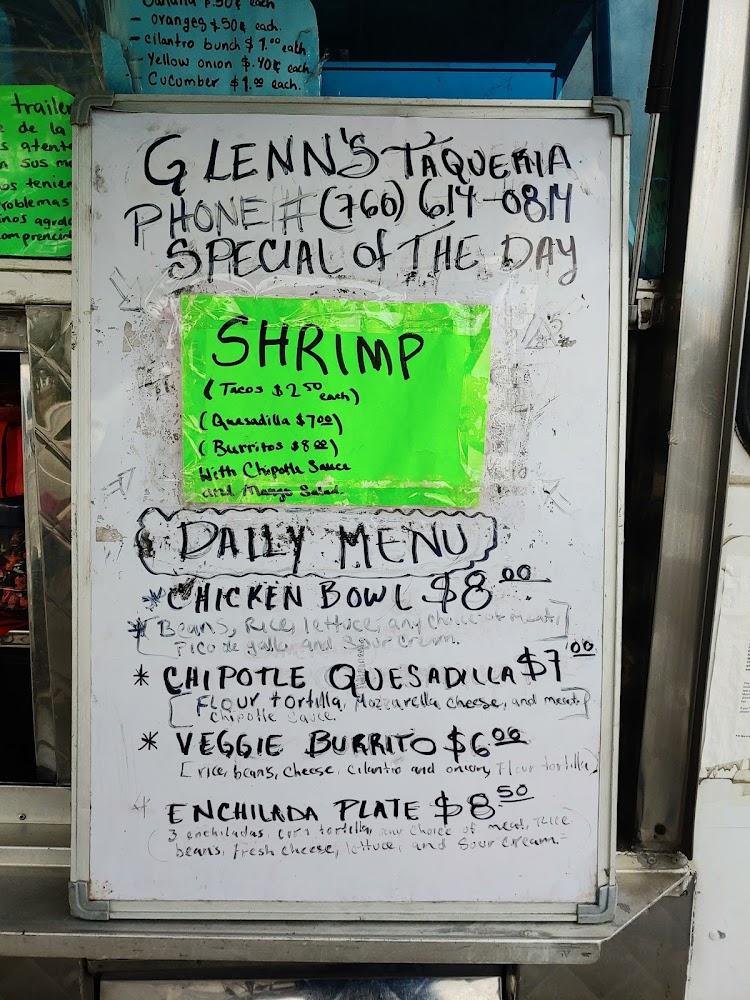 banana $.50¢ each
- oranges $.50¢ each.
- cilantro bunch $1.00 each
- Yellow onion $.40¢ each
- Cucumber $1.00 each.
trailer
de la
atent
sus
tenien
roblemas
inos agrad
omprencin
GLENN'S TAQUERIA
PHONE # (760) 614-0814
SPECIAL of THE DAY
SHRIMP
(Tacos $2.50 each)
(Quesadilla $7.00)
(Burritos $8.00)
With Chipotle Sauce
and Mango Salad.
DAILY MENU
* CHICKEN BOWL $8.00
* Beans, Rice, lettuce, any choice of meat,
Pico de gallo, and Sour Cream.
* CHIPOTLE QUESADILLA $7.00
[FLOUR tortilla, Mozzarella cheese, and meat,
chipotle sauce.
* VEGGIE BURRITO $6.00
[rice, beans, cheese, cilantro and onion, Flour tortilla]
ENCHILADA PLATE $8.50
3 enchiladas, corn tortilla, any choice of meat, rice
beans, fresh cheese, lettuce, and Sour Cream.